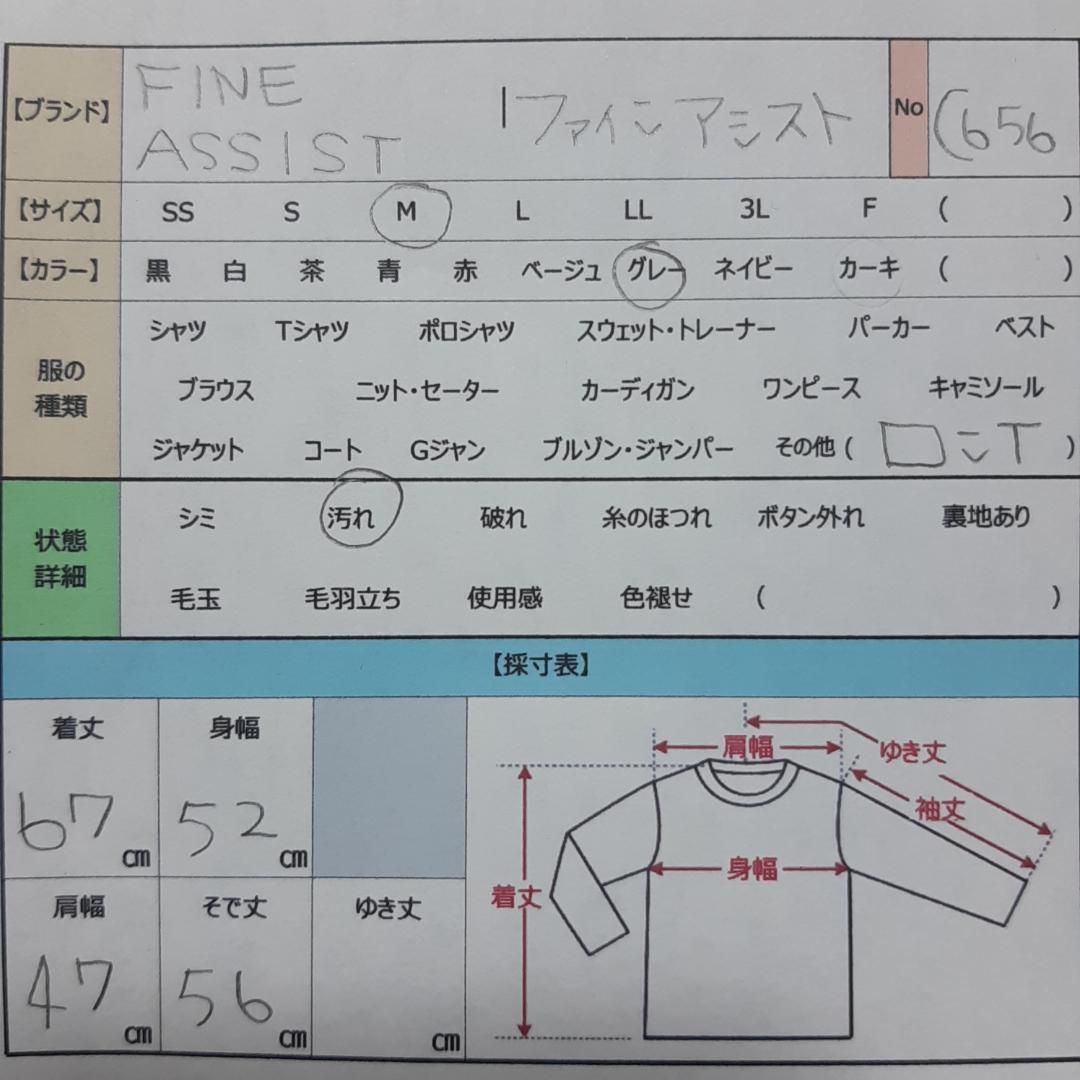 【ブランド】 FINE ASSIST |ファインアシスト No (656
【サイズ】 SS S M L LL 3L F ( )
【カラー】 黒 白 茶 青 赤 ベージュ グレー ネイビー カーキ ( )
服の種類
シャツ Tシャツ ポロシャツ スウェット・トレーナー パーカー ベスト
ブラウス ニット・セーター カーディガン ワンピース キャミソール
ジャケット コート Gジャン ブルゾン・ジャンパー その他 ( ロンT )
状態詳細
シミ 汚れ 破れ 糸のほつれ ボタン外れ 裏地あり
毛玉 毛羽立ち 使用感 色褪せ ( )
【採寸表】
着丈 67 cm
身幅 52 cm
肩幅 47 cm
そで丈 56 cm
ゆき丈 cm
肩幅
ゆき丈
袖丈
身幅
着丈